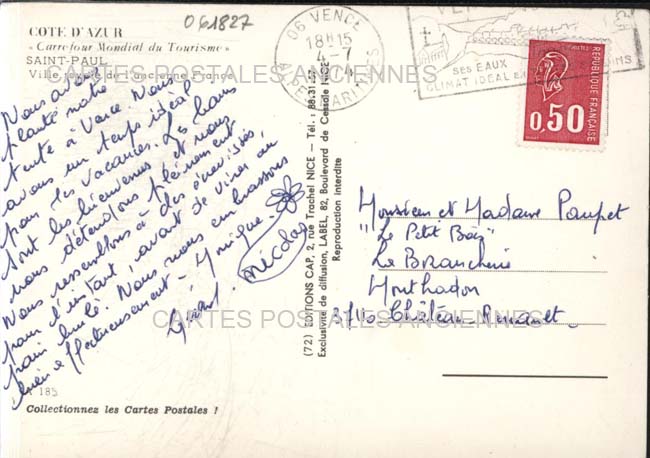 061827
COTE D'AZUR
« Carrefour Mondial du Tourisme »
SAINT-PAUL
Ville royale de l'ancienne France
CARTES POSTALES ANCIENNES
06 VENCE
18H15
4-7
ALPES MARITIMES
SES EAUX
CLIMAT IDEAL
POSTES
RÉPUBLIQUE FRANÇAISE
0,50
Nous avons
planté notre
tente à Vence. Nous
avons un temps idéal
pour les vacances. Les bains
sont les bienvenus et nous
nous détendons pleinement.
Nous ressemblons à des écrevisses,
pour l'instant, avant de virer au
pain brulé. Nous vous embrassons
bien affectueusement - Monique.
Gérard. nicolas
(72) EDITIONS CAP, 2, rue Trachel NICE — Tél. : 88.31
Exclusivité de diffusion, LABEL, 82, Boulevard de Cessole NICE
Reproduction interdite
Monsieur et Madame Paupet
"Le Petit Bois"
La Brancherie
Monthodon
37110 - Château-Renault.
CARTES POSTALES ANCIENNES
185
Collectionnez les Cartes Postales !